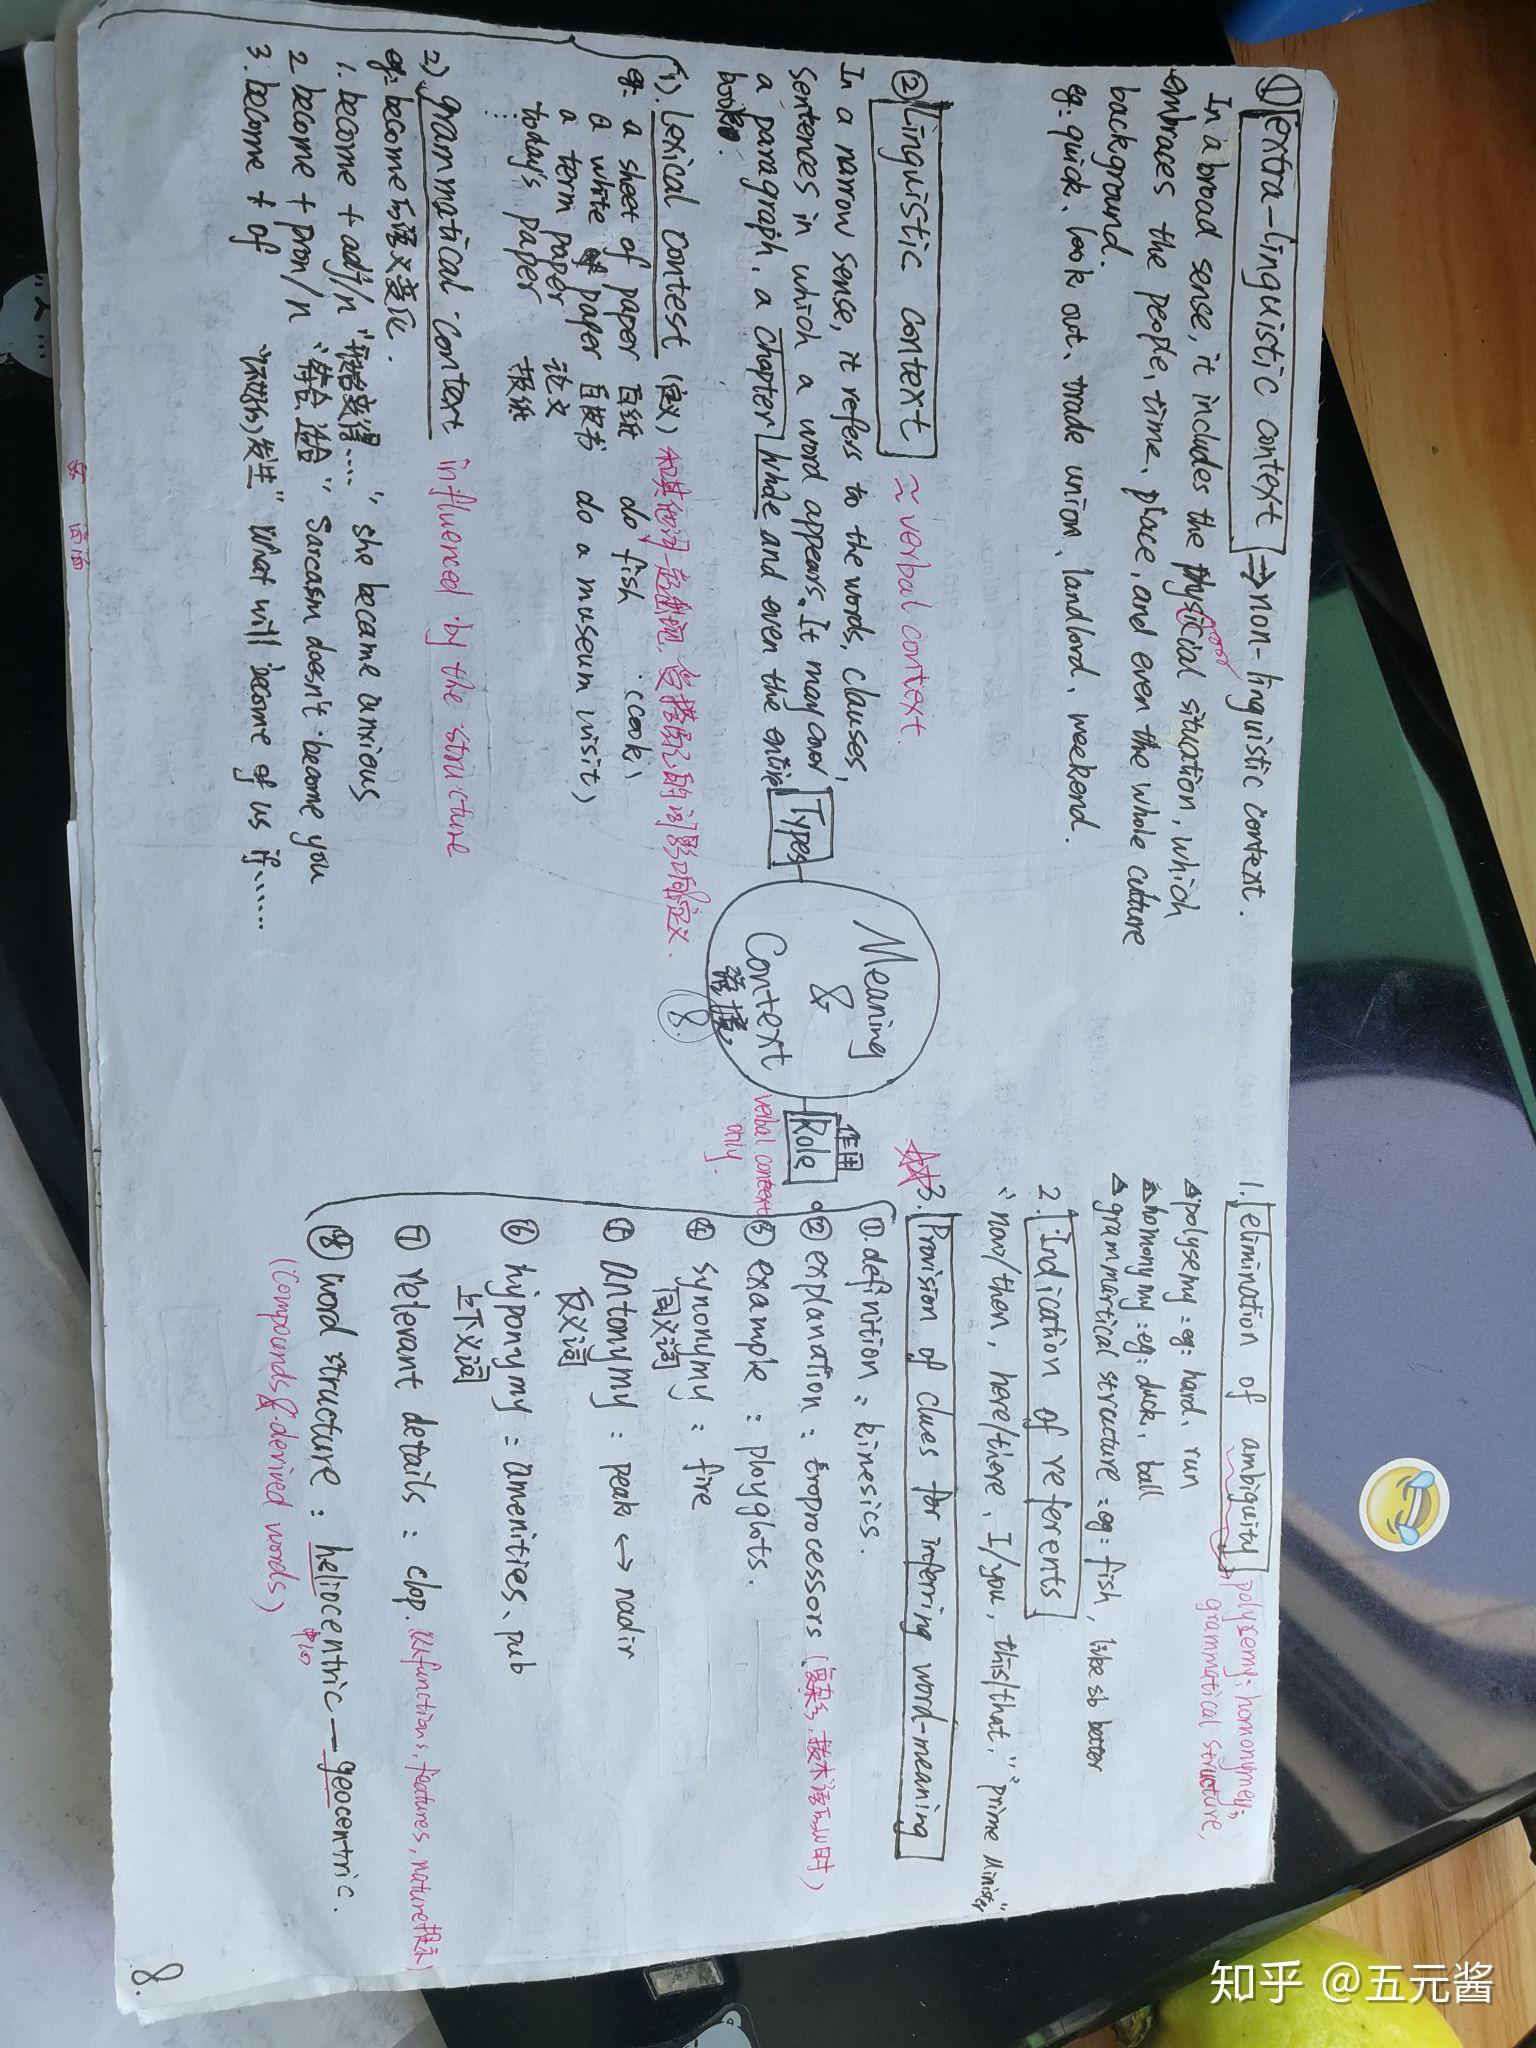 ① extra-linguistic context ⇒ non-linguistic context.
In a broad sense, it includes the physical situation, which
embraces the people, time, place, and even the whole culture
background.
eg: quick, look out, trade union, landlord, weekend.
② Linguistic context ~ verbal context.
In a narrow sense, it refers to the words, clauses,
sentences in which a word appears. It may cover
a paragraph, a chapter whole and even the entire
book.
1). Lexical contest (定义) 和其他词一起出现, 受搭配的词影响定义.
eg: a sheet of paper 白纸 do fish (cook)
a white paper 白皮书 do a museum (visit)
a term paper 论文
today's paper 报纸
2) grammatical context influenced by the structure
eg: become 的语义变化.
1. become + adj/n "开始变得…" she became anxious
2. become + pron/n "符合、适合" Sarcasm doesn't become you
3. become + of "发生" What will become of us if……
Types
Meaning
&
Context
语境
8.
作用
Role
verbal context
only.
1. elimination of ambiguity polysemy; homonymy;
grammatical structure,
△ polysemy: eg: hard, run
△ homonymy: eg: duck, ball
△ grammartical structure: eg: fish, like sb better
2. Indication of referents
"now/then, here/there, I/you, this/that," "prime Minister"
3. Provision of clues for inferring word-meaning
① definition: kinesics.
② explanation: troprocessors
③ example: ployglots.
④ synonymy: fire
同义词
⑤ antonymy: peak ↔ nadir
反义词
⑥ hyponymy: amenities, pub
上下义词
⑦ relevant details: clop. (从functions, features, nature提示)
⑧ word structure: heliocentric → geocentric.
中心的
(Compounds & derived words)
8.
知乎 @五元酱